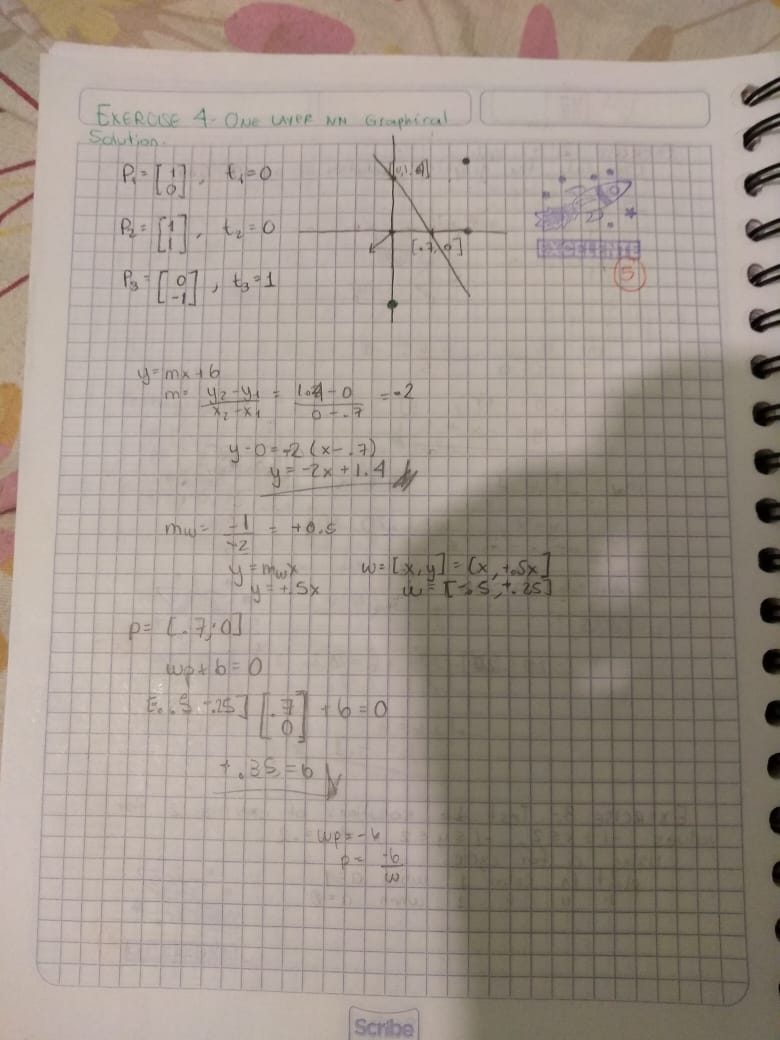 EXERCISE 4- ONE LAYER NN Graphical
Solution.
P₁ = [1 0], t₁ = 0
P₂ = [1 1], t₂ = 0
P₃ = [0 -1], t₃ = 1
[0,1.4]
[.7,0]
EXCELENTE
5
y = mx + b
m = y₂-y₁ / x₂-x₁ = 1.4-0 / 0-.7 = -2
y-0 = -2(x-.7)
y = -2x + 1.4
mw = -1 / -2 = +0.5
y = mwx
y = +.5x
w = [x,y] = (x,+.5x]
w = [-.5,-.25]
p = [.7,0]
wp + b = 0
[-.5 -.25] [.7 0] + b = 0
+.35 = b
wp = -b
p = -b / w
Scribe